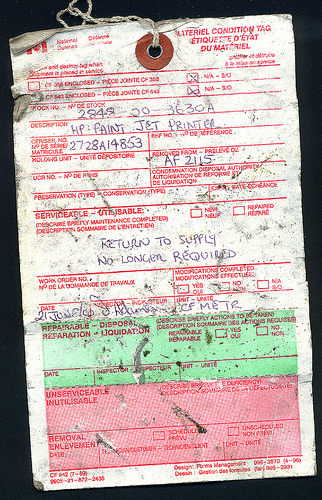 National Défense
MATERIEL CONDITION TAG
ÉTIQUETTE D'ÉTAT
DU MATÉRIEL
and destroy tag when
equipment is placed in service
enlever et détruire
à la mise en service
CF 358 ENCLOSED - PIÈCE JOINTE CF 358
N/A - S/O
CF 543 ENCLOSED - PIÈCE JOINTE CF 543
N/A - S/O
STOCK NO. - Nº DE STOCK
DESCRIPTION
HP. PAINT JET PRINTER
SER. NO.
Nº DE SÉRIE
MATRICULE
2728A14853
REF NO. - Nº DE RÉFÉRENCE
HOLDING UNIT - UNITÉ DÉPOSITOIRE
REMOVED FROM - PRÉLEVÉ DU
AF 2115
UCR NO. - Nº DE
CONDEMNATION DISPOSAL AUTHORITY
AUTORISATION DE RÉFORME ET
DE LIQUIDATION
PRESERVATION (TYPE) - CONSERVATION (TYPE)
SERVICEABLE - UTILISABLE
(DESCRIBE BRIEFLY MAINTENANCE COMPLETED)
(DESCRIPTION SOMMAIRE DE L'ENTRETIEN)
NEW
NEUF
REPAIRED
RÉPARÉ
RETURN TO SUPPLY
NO LONGER REQUIRED
WORK ORDER NO.
Nº DE LA COMMANDE DE TRAVAUX
MODIFICATIONS COMPLETED
MODIFICATIONS EFFECTUÉES
YES
OUI
NO
NON
N/A
S/O
DATE
UNIT - UNITÉ
REPAIRABLE - DISPOSAL
RÉPARATION - LIQUIDATION
(DESCRIBE BRIEFLY ACTIONS TO BE TAKEN)
(DESCRIPTION SOMMAIRE DES ACTIONS REQUISES)
REPAIRABLE
RÉPARABLE
YES
OUI
NO
NON
DATE
INSPECTOR
INSPECTEUR
UNIT - UNITÉ
UNSERVICEABLE
INUTILISABLE
REMOVAL
ENLÈVEMENT
SCHEDULED
PRÉVU
UNSCHEDULED
NON PRÉVU
DATE
TECHNICIAN/CUSTOMER - TECHNICIEN/CLIENT
UNIT - UNITÉ
CF 942 (7-89)
9905-21-872-2435
Design: Forms Management 996-3870 (4-96)
Dessin: Gestion des formules